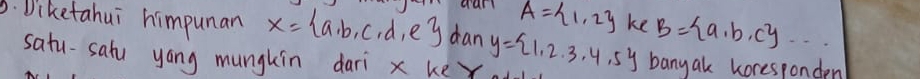 dari A = {1,2} ke B = {a.b.c} ....
Diketahui himpunan x = {a.b.c.d.e} dan y = {1.2.3.4.5} banyak koresponden
satu-satu yang mungkin dari x ke Y